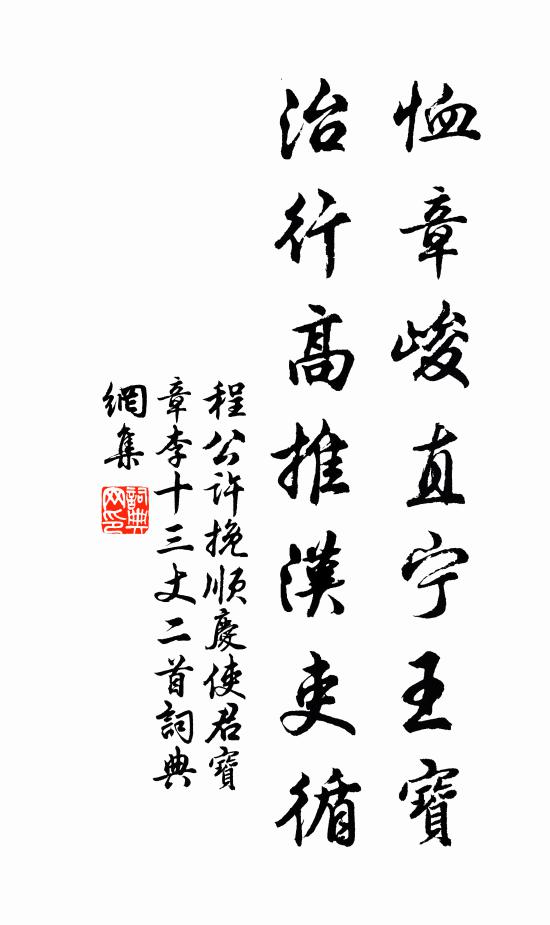 恤章峻直宁王寶
治行高推漢吏循
程公許挽順慶使君寶
章李十三丈二首詞典
網集
詞典網印